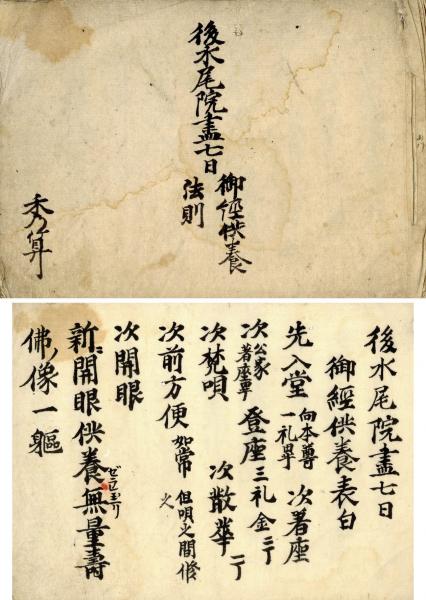 後水尾院盡七日
御經供養
法則
秀算
後水尾院盡七日
御經供養表白
先入堂 向本尊一礼畢 次著座
次 公家著座畢 登座 三礼 金二丁
次梵唄 次散華 二丁
次前方便 如常 但明火間修
次開眼
新開眼供養無量壽
佛ノ像一軀